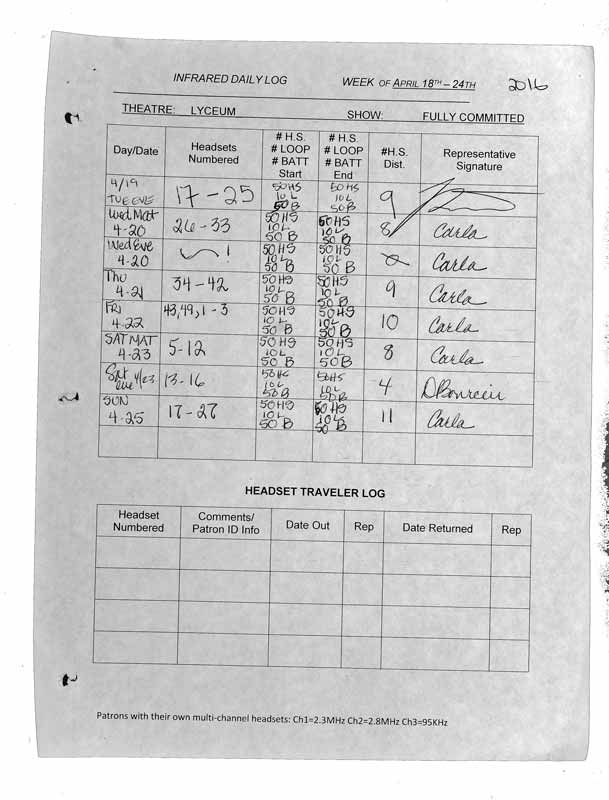 INFRARED DAILY LOG WEEK OF APRIL 18TH – 24TH 2016
THEATRE: LYCEUM SHOW: FULLY COMMITTED
Day/Date Headsets Numbered # H.S. # LOOP # BATT Start # H.S. # LOOP # BATT End #H.S. Dist. Representative Signature
4/19 TUE EVE 17-25 50HS 10L 50B 50HS 10L 50B 9
Wed Mat 4-20 26-33 50HS 10L 50B 50HS 10L 50B 8 Carla
Wed Eve 4-20 50HS 10L 50B 50HS 10L 50B 0 Carla
Thu 4-21 34-42 50HS 10L 50B 50HS 10L 50B 9 Carla
FRI 4-22 43,49,1-3 50HS 10L 50B 50HS 10L 50B 10 Carla
SAT MAT 4-23 5-12 50HS 10L 50B 50HS 10L 50B 8 Carla
Sat eve 4/23 13-16 50HS 10L 50B 50HS 10L 50B 4
SUN 4-25 17-27 50HS 10L 50B 50HS 10L 50B 11 Carla
HEADSET TRAVELER LOG
Headset Numbered Comments/ Patron ID Info Date Out Rep Date Returned Rep
Patrons with their own multi-channel headsets: Ch1=2.3MHz Ch2=2.8MHz Ch3=95KHz